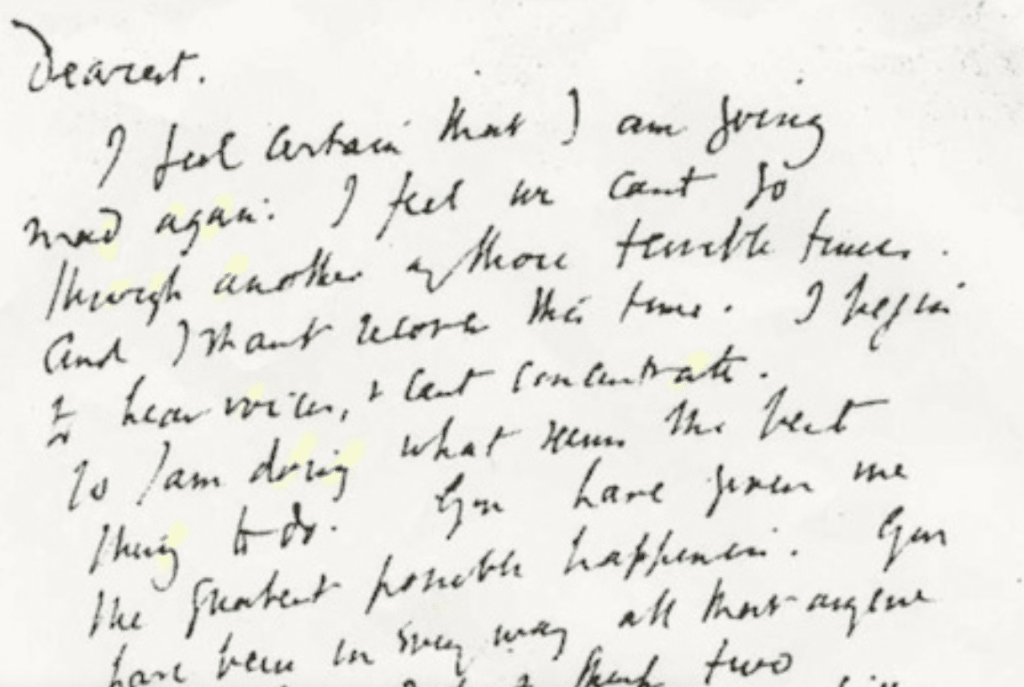 Dearest.
I feel certain that I am going
mad again: I feel we cant go
through another of those terrible times.
And I shant recover this time. I begin
to hear voices, & cant concentrate.
So I am doing what seems the best
thing to do. You have given me
the greatest possible happiness. You
have been in every way all that anyone
think two